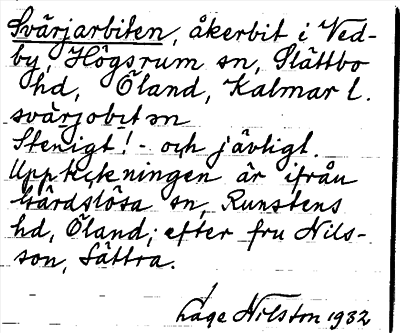 Svärjarbiten, åkerbit i Ved-
by, Högsrum sn, Slättbo
hd, Öland, Kalmar l.
svärjobitən
Stenigt! - och jävligt.
Uppteckningen är ifrån
Gärdslösa sn, Runstens
hd, Öland; efter fru Nils-
son, Sättra.
Åge Nilston 1932